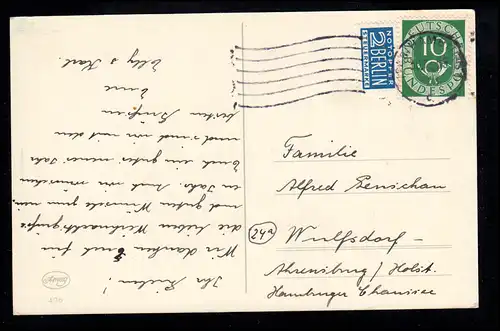 Ihr Lieben!
Wir danken Euch für
die lieben Weihnachtsgrüße
und guten Wünsche zum neu-
en Jahr. Auch wir wünschen
Euch ein gutes neues Jahr
und sind wir mit den
besten Grüßen
Eure
Elly u Karl.
NOTOPFER
2 BERLIN
STEUERMARKE
DEUTSCHE
BUNDESPOST
10
Familie
Alfred
24a
Wulfsdorf-
Ahrensburg / Holst.
Hamburger Chaussee